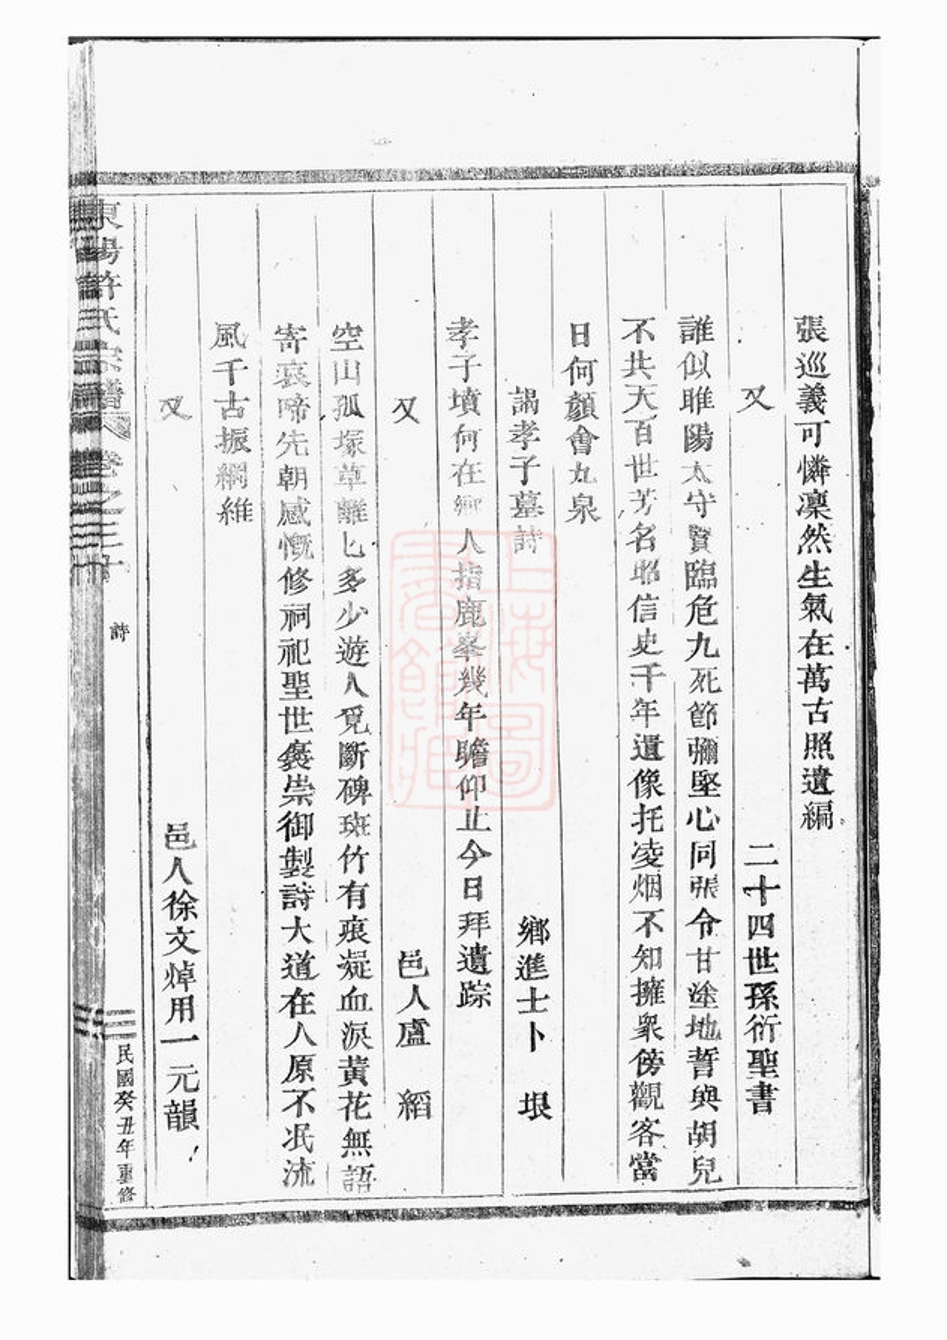 張巡義可憐凜然生氣在萬古照遺編
又
二十四世孫衍聖書
誰似睢陽太守賢臨危九死節彌堅心同張令甘塗地誓與胡兒
不共天百世芳名昭信史千年遺像托凌烟不知擁衆傍觀客當
日何顏會九泉
謁孝子墓詩
鄉進士卜垠
孝子墳何在鄉人指鹿峯幾年瞻仰止今日拜遺踪
又
邑人盧縚
空山孤塚草離匕多少遊人覓斷碑斑竹有痕凝血淚黃花無語
寄哀啼先朝感慨修祠祀聖世褒崇御製詩大道在人原不泯流
風千古振綱維
又
邑人徐文焯用一元韻
東陽許氏宗譜
卷之三十
詩
三
民國癸丑年重修
上海圖書館藏